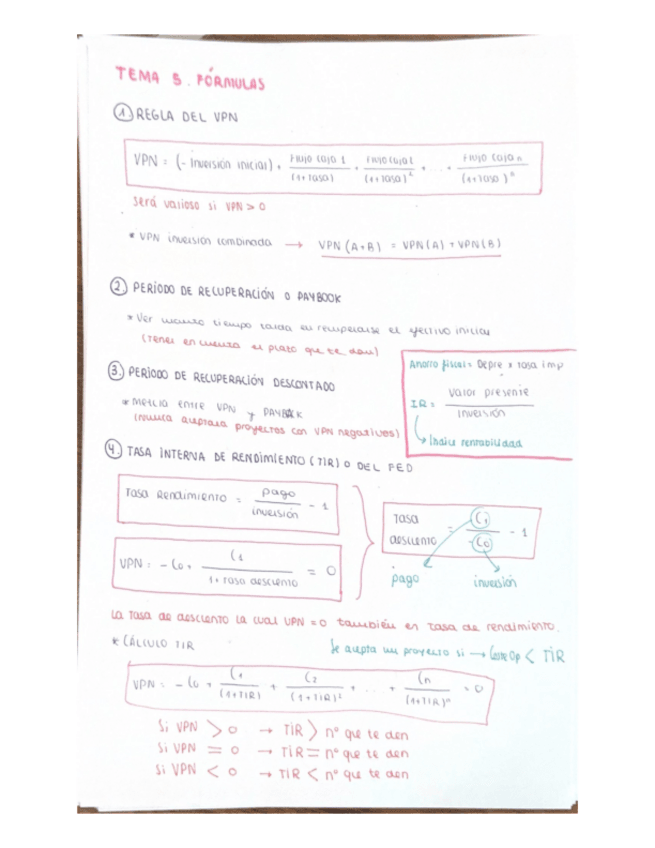 TEMA 5. FÓRMULAS
① REGLA DEL VPN
VPN = (- Inversión inicial) + Flujo caja 1 / (1+Tasa) + Flujo caja 2 / (1+Tasa)² + ... + Flujo caja n / (1+Tasa)ⁿ
Será valioso si VPN > 0
* VPN inversión combinada → VPN (A+B) = VPN(A) + VPN(B)
② PERÍODO DE RECUPERACIÓN O PAYBOOK
* Ver cuanto tiempo tarda en recuperarse el efectivo inicial
(Tener en cuenta el plazo que te dan)
Ahorro fiscal = Depre x tasa imp
IR = valor presente / inversión
Índice rentabilidad
③ PERÍODO DE RECUPERACIÓN DESCONTADO
* Mezcla entre VPN y PAYBACK
(Nunca aceptará proyectos con VPN negativos)
④ TASA INTERNA DE RENDIMIENTO (TIR) O DEL FED
Tasa Rendimiento = pago / inversión - 1
TASA descuento = C₁ / -C₀ - 1
pago inversión
VPN = - C₀ + C₁ / 1 + tasa descuento = 0
La tasa de descuento la cual VPN = 0 también en tasa de rendimiento.
* CÁLCULO TIR
Se acepta un proyecto si → Coste Op < TIR
VPN = - C₀ + C₁ / (1+TIR) + C₂ / (1+TIR)² + ... + Cn / (1+TIR)ⁿ = 0
Si VPN > 0 → TIR > nº que te den
Si VPN = 0 → TIR = nº que te den
Si VPN < 0 → TIR < nº que te den